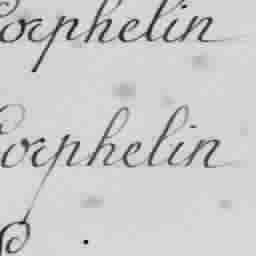 orphelin
orphelin